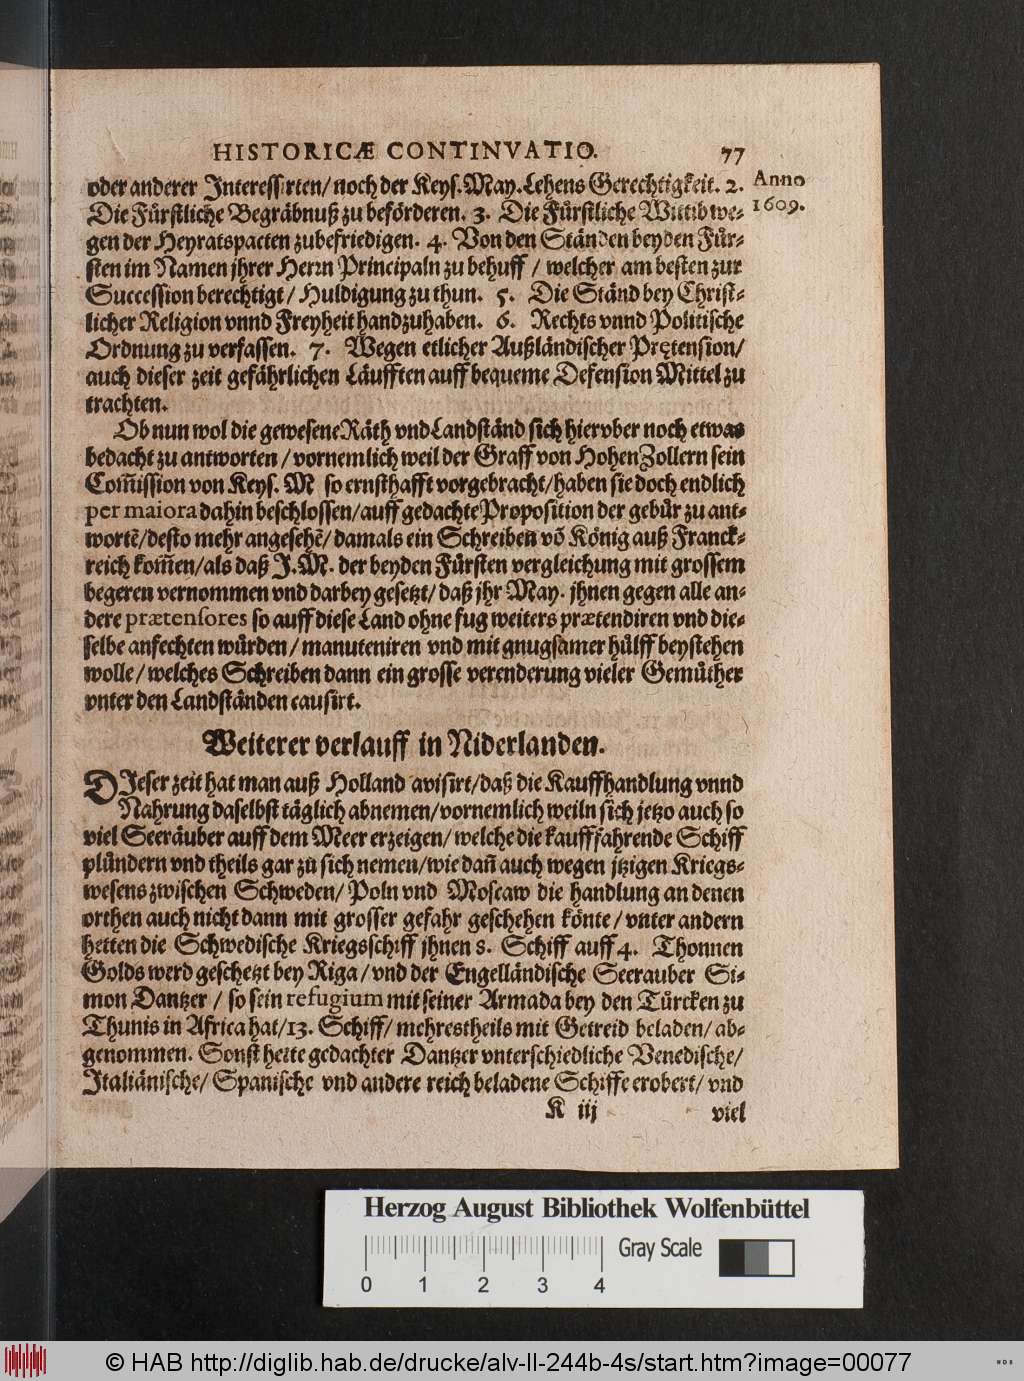 HISTORICÆ CONTINVATIO. 77
oder anderer Interessirten/ noch der Keys. May. Lehens Gerechtigkeit. 2.
Anno
1609.
Die Fürstliche Begräbnuß zu beförderen. 3. Die Fürstliche Wittib we-
gen der Heyratspacten zubefriedigen. 4. Von den Ständen beyden Für-
sten im Namen jhrer Herrn Principaln zu behuff / welcher am besten zur
Succession berechtigt/ Huldigung zu thun. 5. Die Ständ bey Christ-
licher Religion vnnd Freyheit handzuhaben. 6. Rechts vnnd Politische
Ordnung zu verfassen. 7. Wegen etlicher Außländischer Prętension/
auch dieser zeit gefährlichen Läufften auff bequeme Defension Mittel zu
trachten.
Ob nun wol die gewesene Räth vnd Landständ sich hiervber noch etwas
bedacht zu antworten / vornemlich weil der Graff von HohenZollern sein
Com̃ission von Keys. M so ernsthafft vorgebracht/ haben sie doch endlich
per maiora dahin beschlossen/ auff gedachte Proposition der gebür zu ant-
wortẽ/ desto mehr angesehẽ/ damals ein Schreiben võ König auß Franck-
reich kom̃en/ als daß J. M. der beyden Fürsten vergleichung mit grossem
begeren vernommen vnd darbey gesetzt/ daß jhr May. jhnen gegen alle an-
dere prætensores so auff diese Land ohne fug weiters prætendiren vnd die-
selbe anfechten würden/ manuteniren vnd mit gnugsamer hülff beystehen
wolle/ welches Schreiben dann ein grosse verenderung vieler Gemüther
vnter den Landständen causirt.
Weiterer verlauff in Niderlanden.
DIeser zeit hat man auß Holland avisirt/ daß die Kauffhandlung vnnd
Nahrung daselbst täglich abnemen/ vornemlich weiln sich jetzo auch so
viel Seeräuber auff dem Meer erzeigen/ welche die kauffahrende Schiff
plündern vnd theils gar zu sich nemen/ wie dañ auch wegen jtzigen Kriegs-
wesens zwischen Schweden/ Poln vnd Moscaw die handlung an denen
orthen auch nicht dann mit grosser gefahr geschehen könte/ vnter andern
hetten die Schwedische Kriegsschiff jhnen 8. Schiff auff 4. Thonnen
Golds werd geschetzt bey Riga/ vnd der Engelländische Seerauber Si-
mon Dantzer / so sein refugium mit seiner Armada bey den Türcken zu
Thunis in Africa hat/ 13. Schiff/ mehrestheils mit Getreid beladen/ ab-
genommen. Sonst hette gedachter Dantzer vnterschiedliche Venedische/
Italiänische/ Spanische vnd andere reich beladene Schiffe erobert/ vnd
K iij viel
Herzog August Bibliothek Wolfenbüttel
0 1 2 3 4 Gray Scale
© HAB http://diglib.hab.de/drucke/alv-ll-244b-4s/start.htm?image=00077